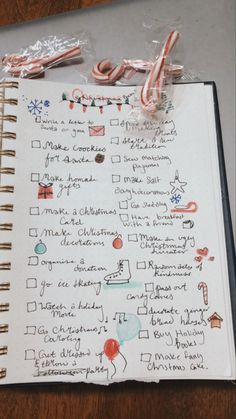 Christmas
Write a letter to
Santa or you
Make Cookies
for Santa
Make homade
gifts
Make a Christmas
Card
Make Christmas
decorations
Organise a
donation
go ice skating
Watch a holiday
More
Go Christmas
Caroling
Get dressed up
& throw a
party
Start a new
tradition
Sew matching
Pajamas
Make Salt
Go Sledding
Have breakfast
with a friend
Make an ugly
Christmas
Random acts of
kindness
pass out
Candy Canes
decorate ginger
bread houses
Buy Holiday
books
Make Family
Christmas Cake.